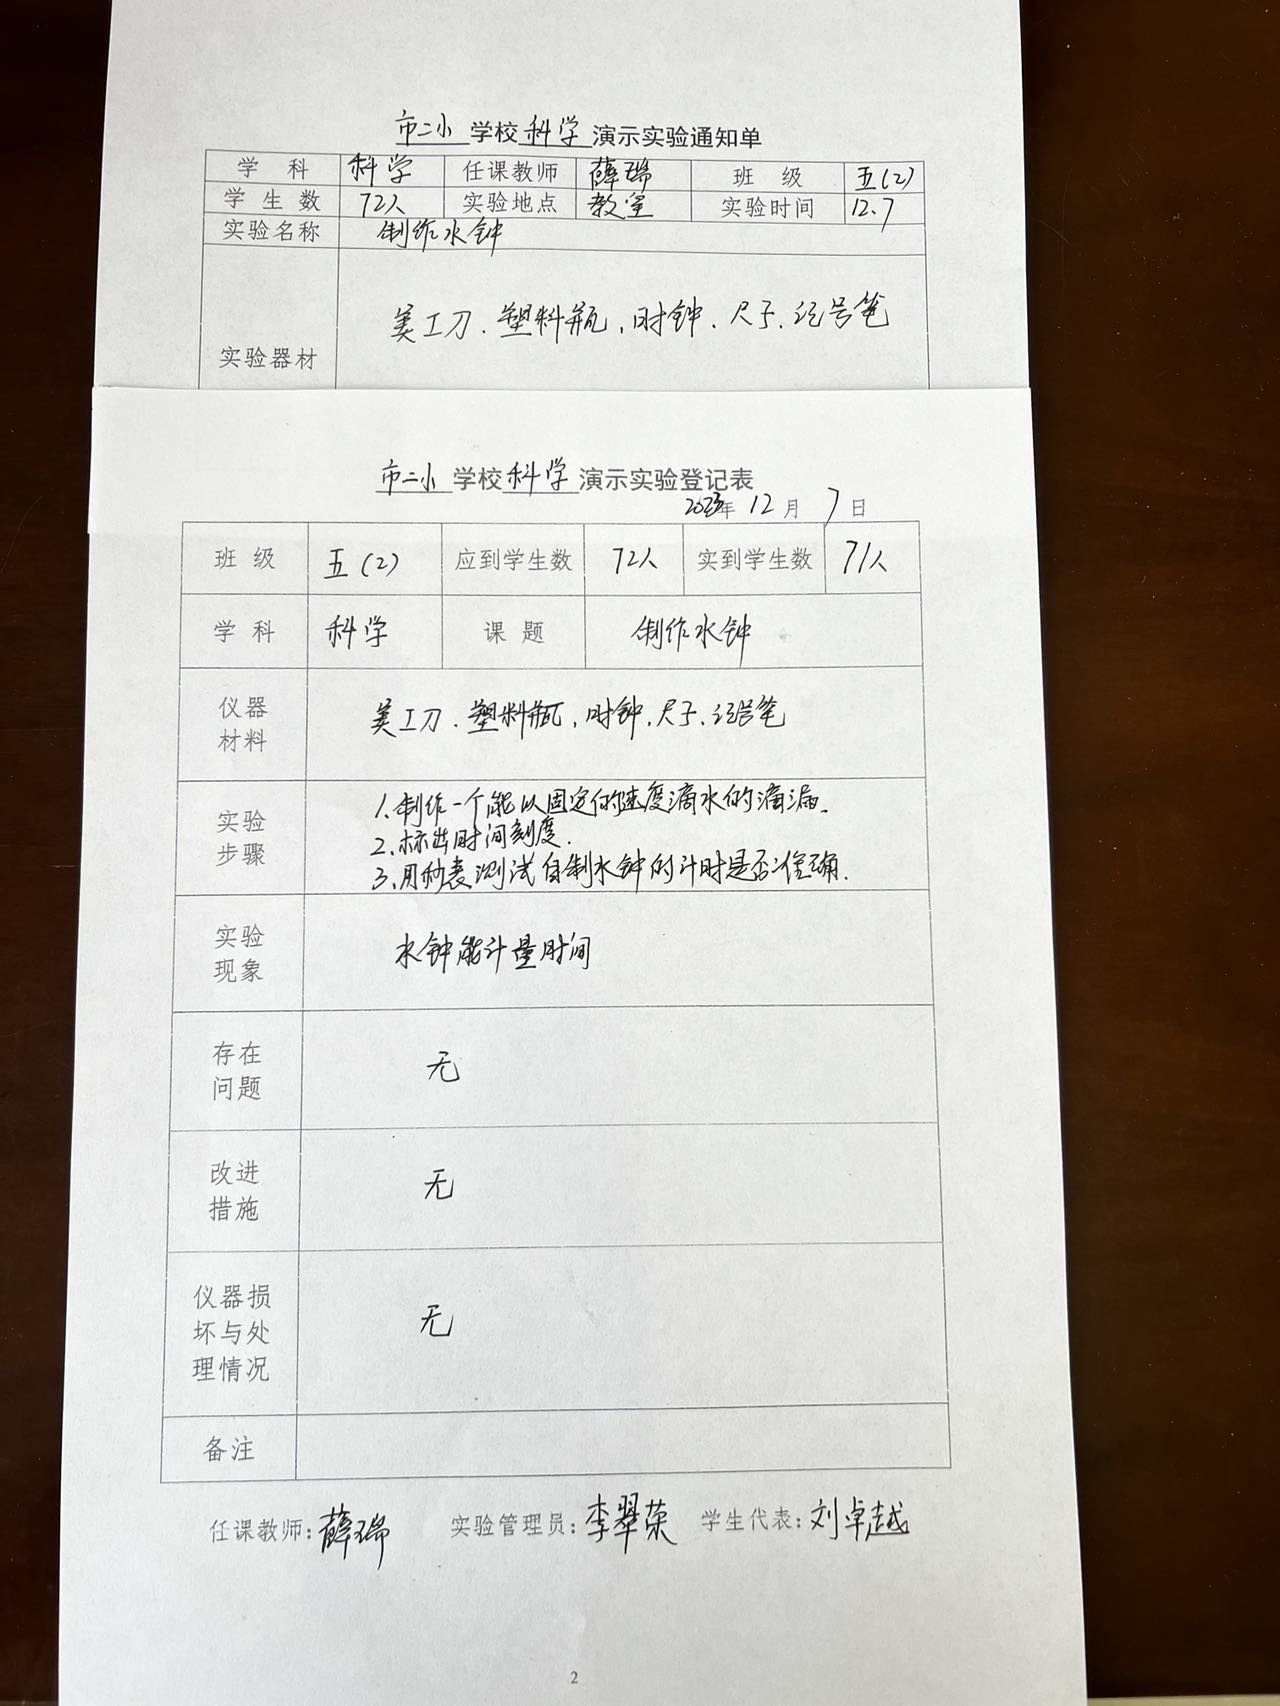 市二小 学校 科学 演示实验通知单
学 科 科学 任课教师 薛瑞 班 级 五(2)
学 生 数 72人 实验地点 教室 实验时间 12.7
实验名称 制作水钟
实验器材 美工刀、塑料瓶、时钟、尺子、记号笔
市二小 学校 科学 演示实验登记表
2023年 12 月 7 日
班 级 五(2) 应到学生数 72人 实到学生数 71人
学 科 科学 课 题 制作水钟
仪器
材料
美工刀、塑料瓶、时钟、尺子、记号笔
实验
步骤
1、制作一个能以固定的速度滴水的滴漏.
2、标出时间刻度.
3、用秒表测试自制水钟的计时是否准确.
实验
现象
水钟能计量时间
存在
问题
无
改进
措施
无
仪器损
坏与处
理情况
无
备注
任课教师:薛瑞 实验管理员:李翠荣 学生代表:刘卓越
2